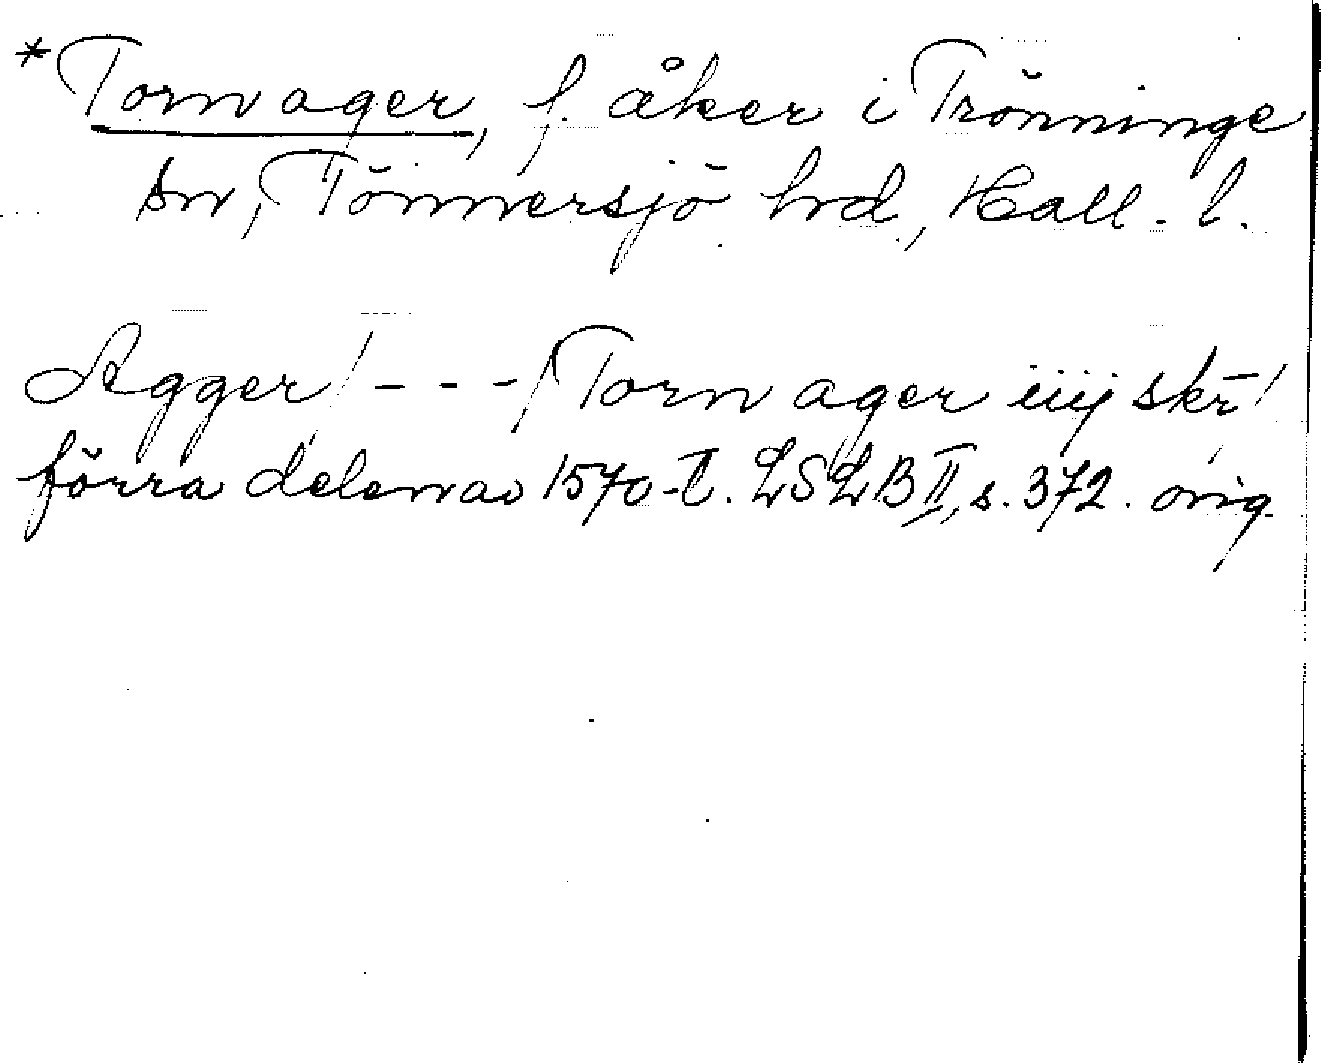 *Tornager, f. åker i Trönninge
sn, Tönnersjö hrd, Hall. l.
Agger/---/Torn ager iiij skr̄/
förra delen av 1570-t. LSLB II, s. 372. orig.